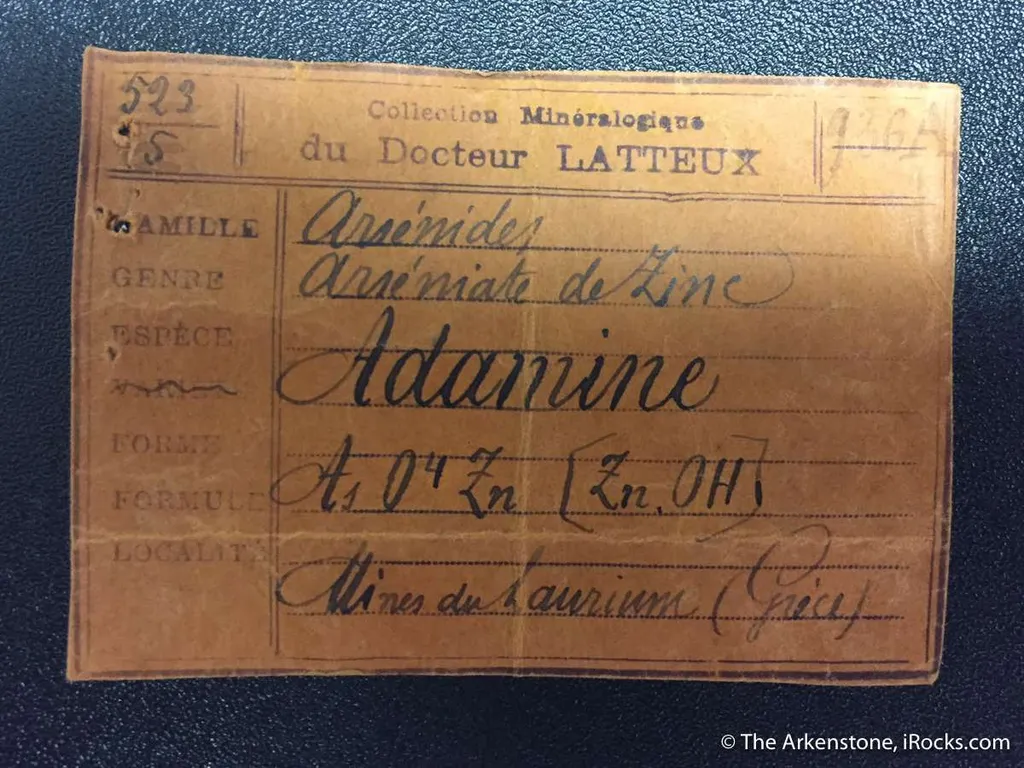 523
5
Collection Minéralogique
du Docteur LATTEUX
FAMILLE Arsénides
GENRE Arséniate de Zinc
ESPÈCE Adamine
FORME
FORMULE As O⁴ Zn [Zn.OH]
LOCALITÉ Mines du Laurium (Grèce)
© The Arkenstone, iRocks.com